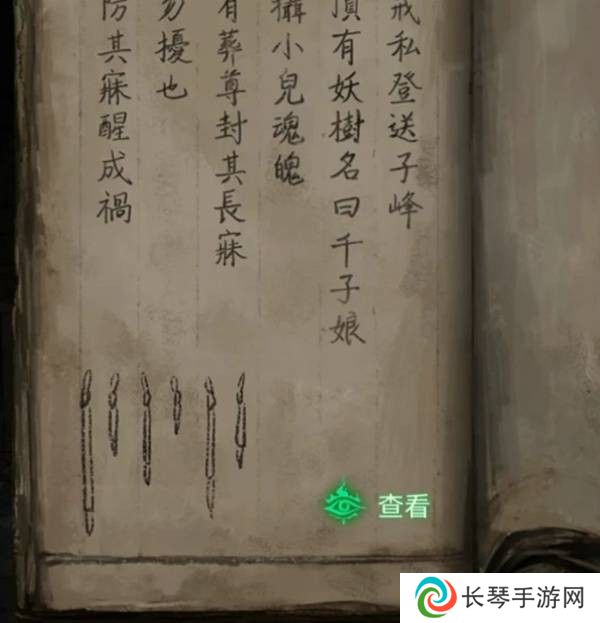 戒私登送子峰
頂有妖樹名曰千子娘
攝小兒魂魄
有葬尊封其長寐
勿擾也
防其寐醒成禍
查看
长琴手游网